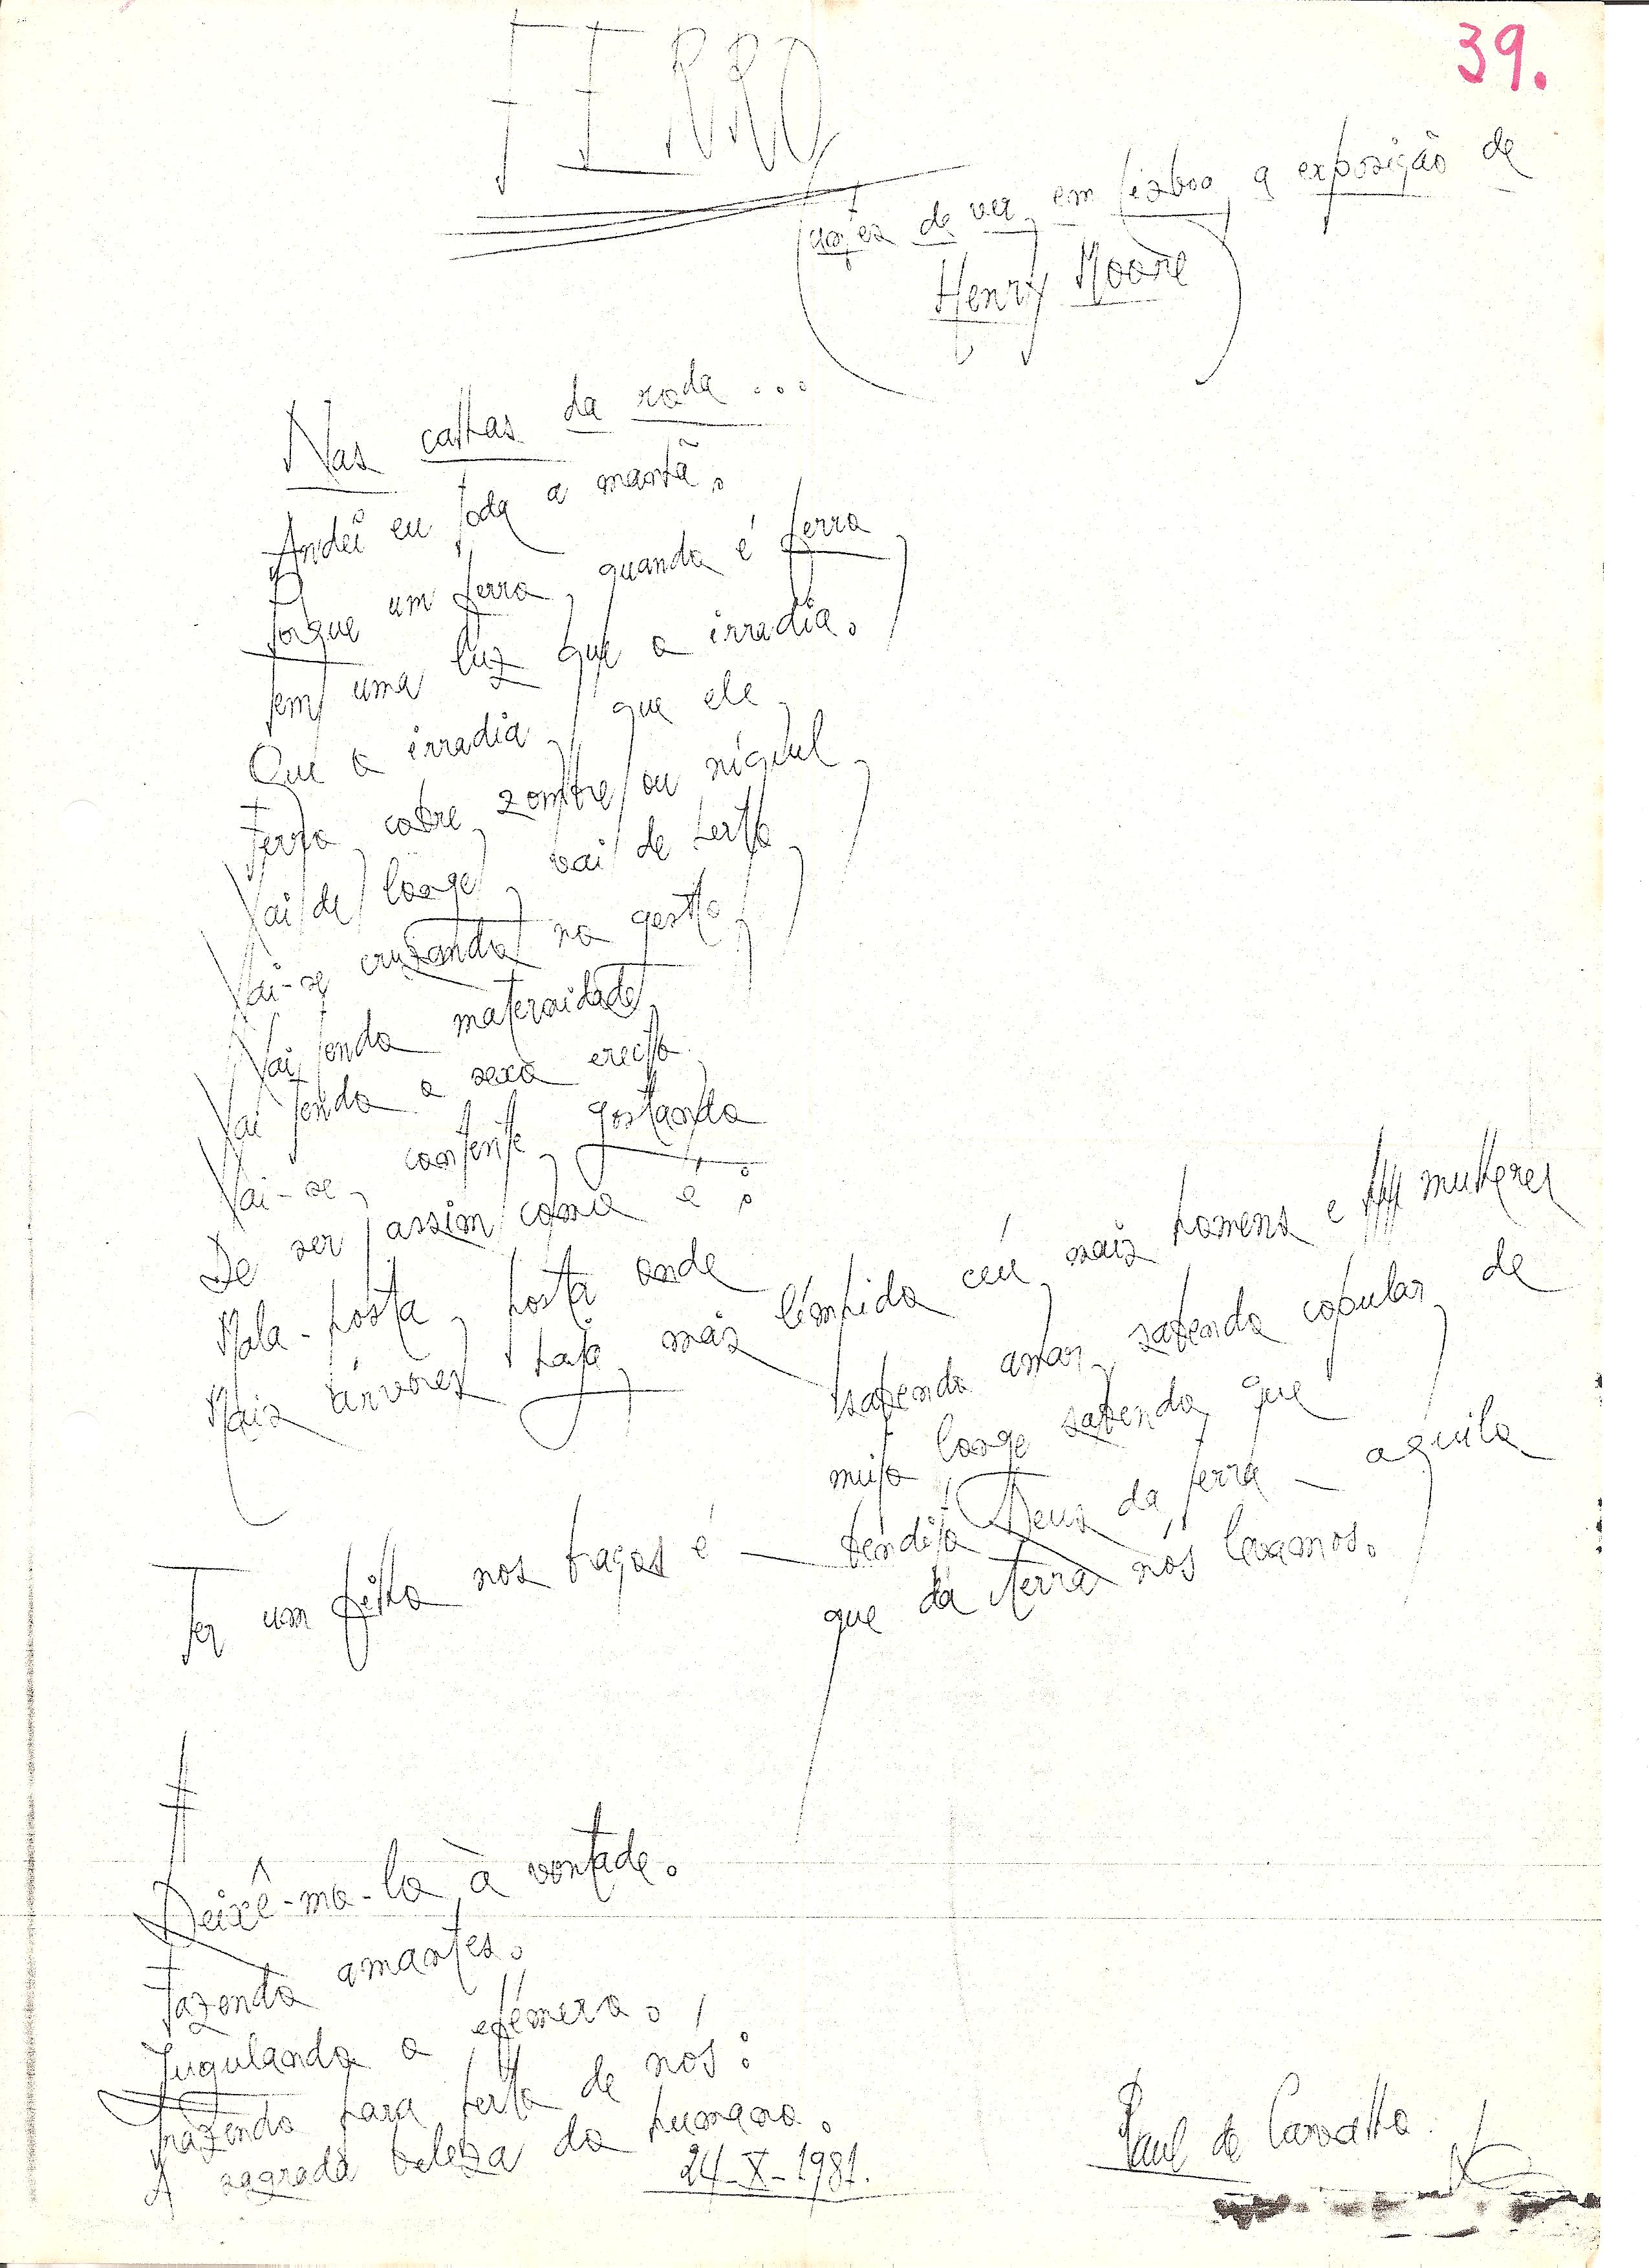 39.
FERRO
(antes de ver, em Lisboa, a exposição de
Henry Moore)
Nas calhas da roda...
Andei eu toda a manhã.
Porque um ferro, quando é ferro,
Tem uma luz que o irradia.
Que o irradia, que ele,
Ferro, cobre, zombre, ou níquel,
Vai de longe, vai de perto,
Vai-se cruzando no gesto,
Vai tendo maternidade,
Vai tendo o sexo erecto.
Vai-se, contente, gostando
De ser assim como é:
Mala-posta, posta onde
Mais árvores haja, mais límpido céu, mais homens e mulheres
sabendo amar, sabendo copular, de
muito longe sabendo que
Ter um filho nos braços é — bendito Deus da terra — aquilo
que da terra nós levamos.
Deixê-mo-lo à vontade.
Fazendo amantes.
Jugulando o efémero.
Trazendo para perto de nós:
A sagrada beleza do humano.
24-X-1981.
Raul de Carvalho